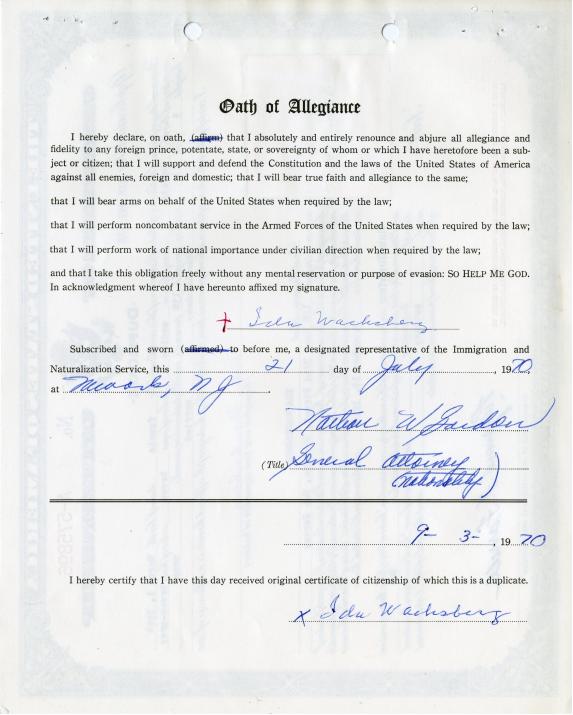 Oath of Allegiance
I hereby declare, on oath, (affirm) that I absolutely and entirely renounce and abjure all allegiance and
fidelity to any foreign prince, potentate, state, or sovereignty of whom or which I have heretofore been a sub-
ject or citizen; that I will support and defend the Constitution and the laws of the United States of America
against all enemies, foreign and domestic; that I will bear true faith and allegiance to the same;
that I will bear arms on behalf of the United States when required by the law;
that I will perform noncombatant service in the Armed Forces of the United States when required by the law;
that I will perform work of national importance under civilian direction when required by the law;
and that I take this obligation freely without any mental reservation or purpose of evasion: SO HELP ME GOD.
In acknowledgment whereof I have hereunto affixed my signature.
Ida Wachsberg
Subscribed and sworn (affirmed) to before me, a designated representative of the Immigration and
Naturalization Service, this 21 day of July, 1970,
at Newark, NJ.
W Gordon
(Title) General Attorney
(nationality)
9-3-, 1970
I hereby certify that I have this day received original certificate of citizenship of which this is a duplicate.
x Ida Wachsberg